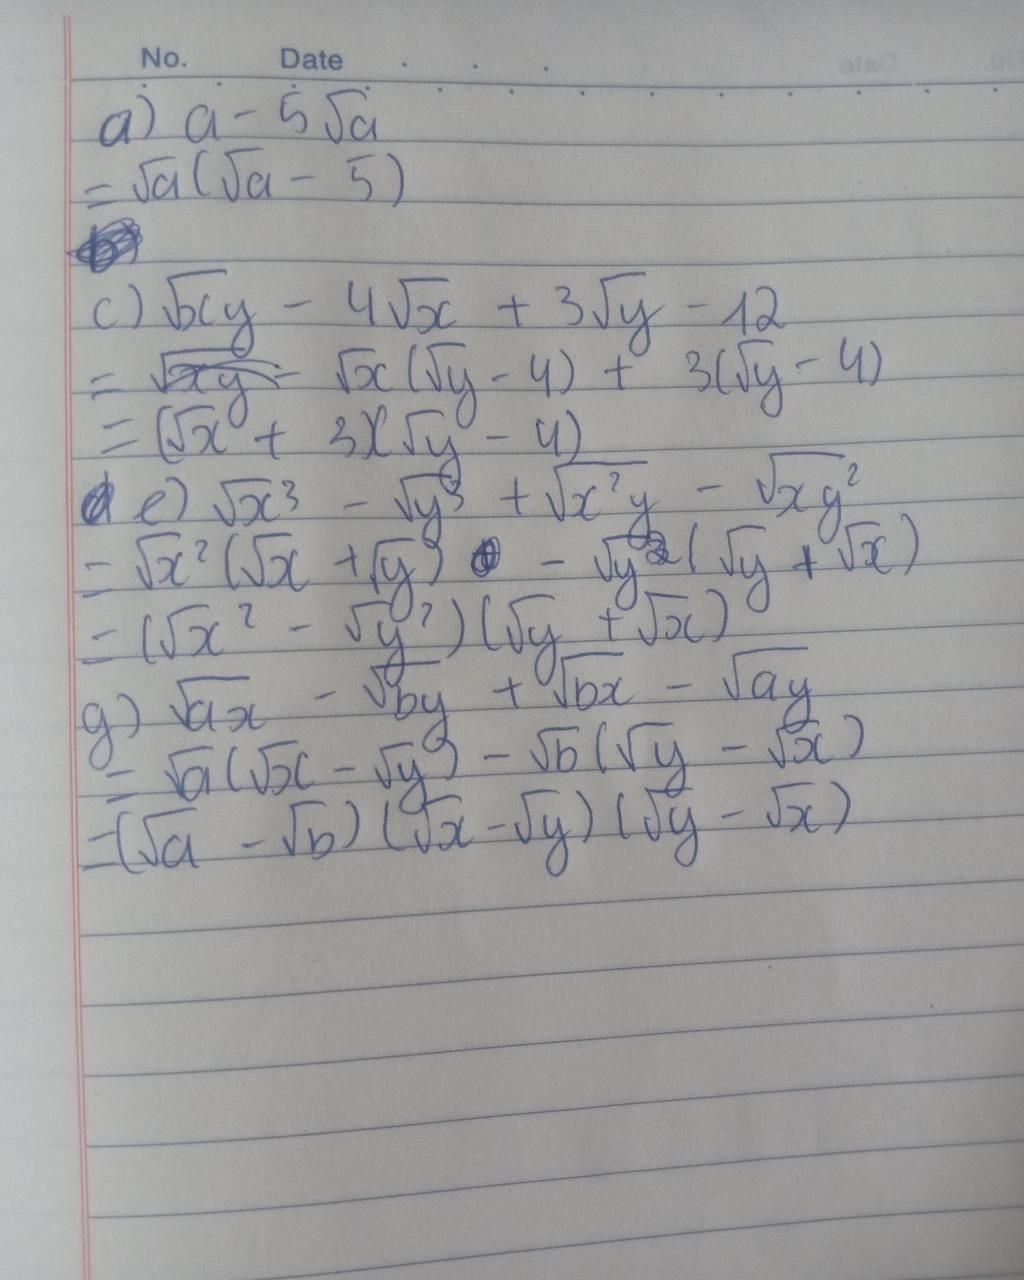 No. Date
a) a - 5√a
= √a(√a - 5)
c) √xy - 4√x + 3√y - 12
= √x(√y - 4) + 3(√y - 4)
= (√x + 3)(√y - 4)
e) √x³ - √y³ + √x²y - √xy²
= √x²(√x + √y) - √y²(√y + √x)
= (√x² - √y²)(√y + √x)
g) √ax - √by + √bx - √ay
= √a(√x - √y) - √b(√y - √x)
= (√a - √b)(√x - √y)(√y - √x)